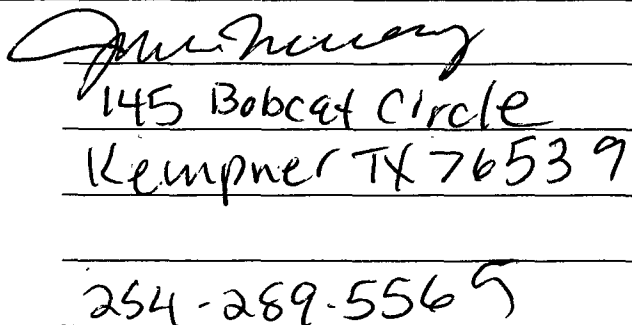 145 Bobcat Circle
Kempner TX 76539
254-289-5565